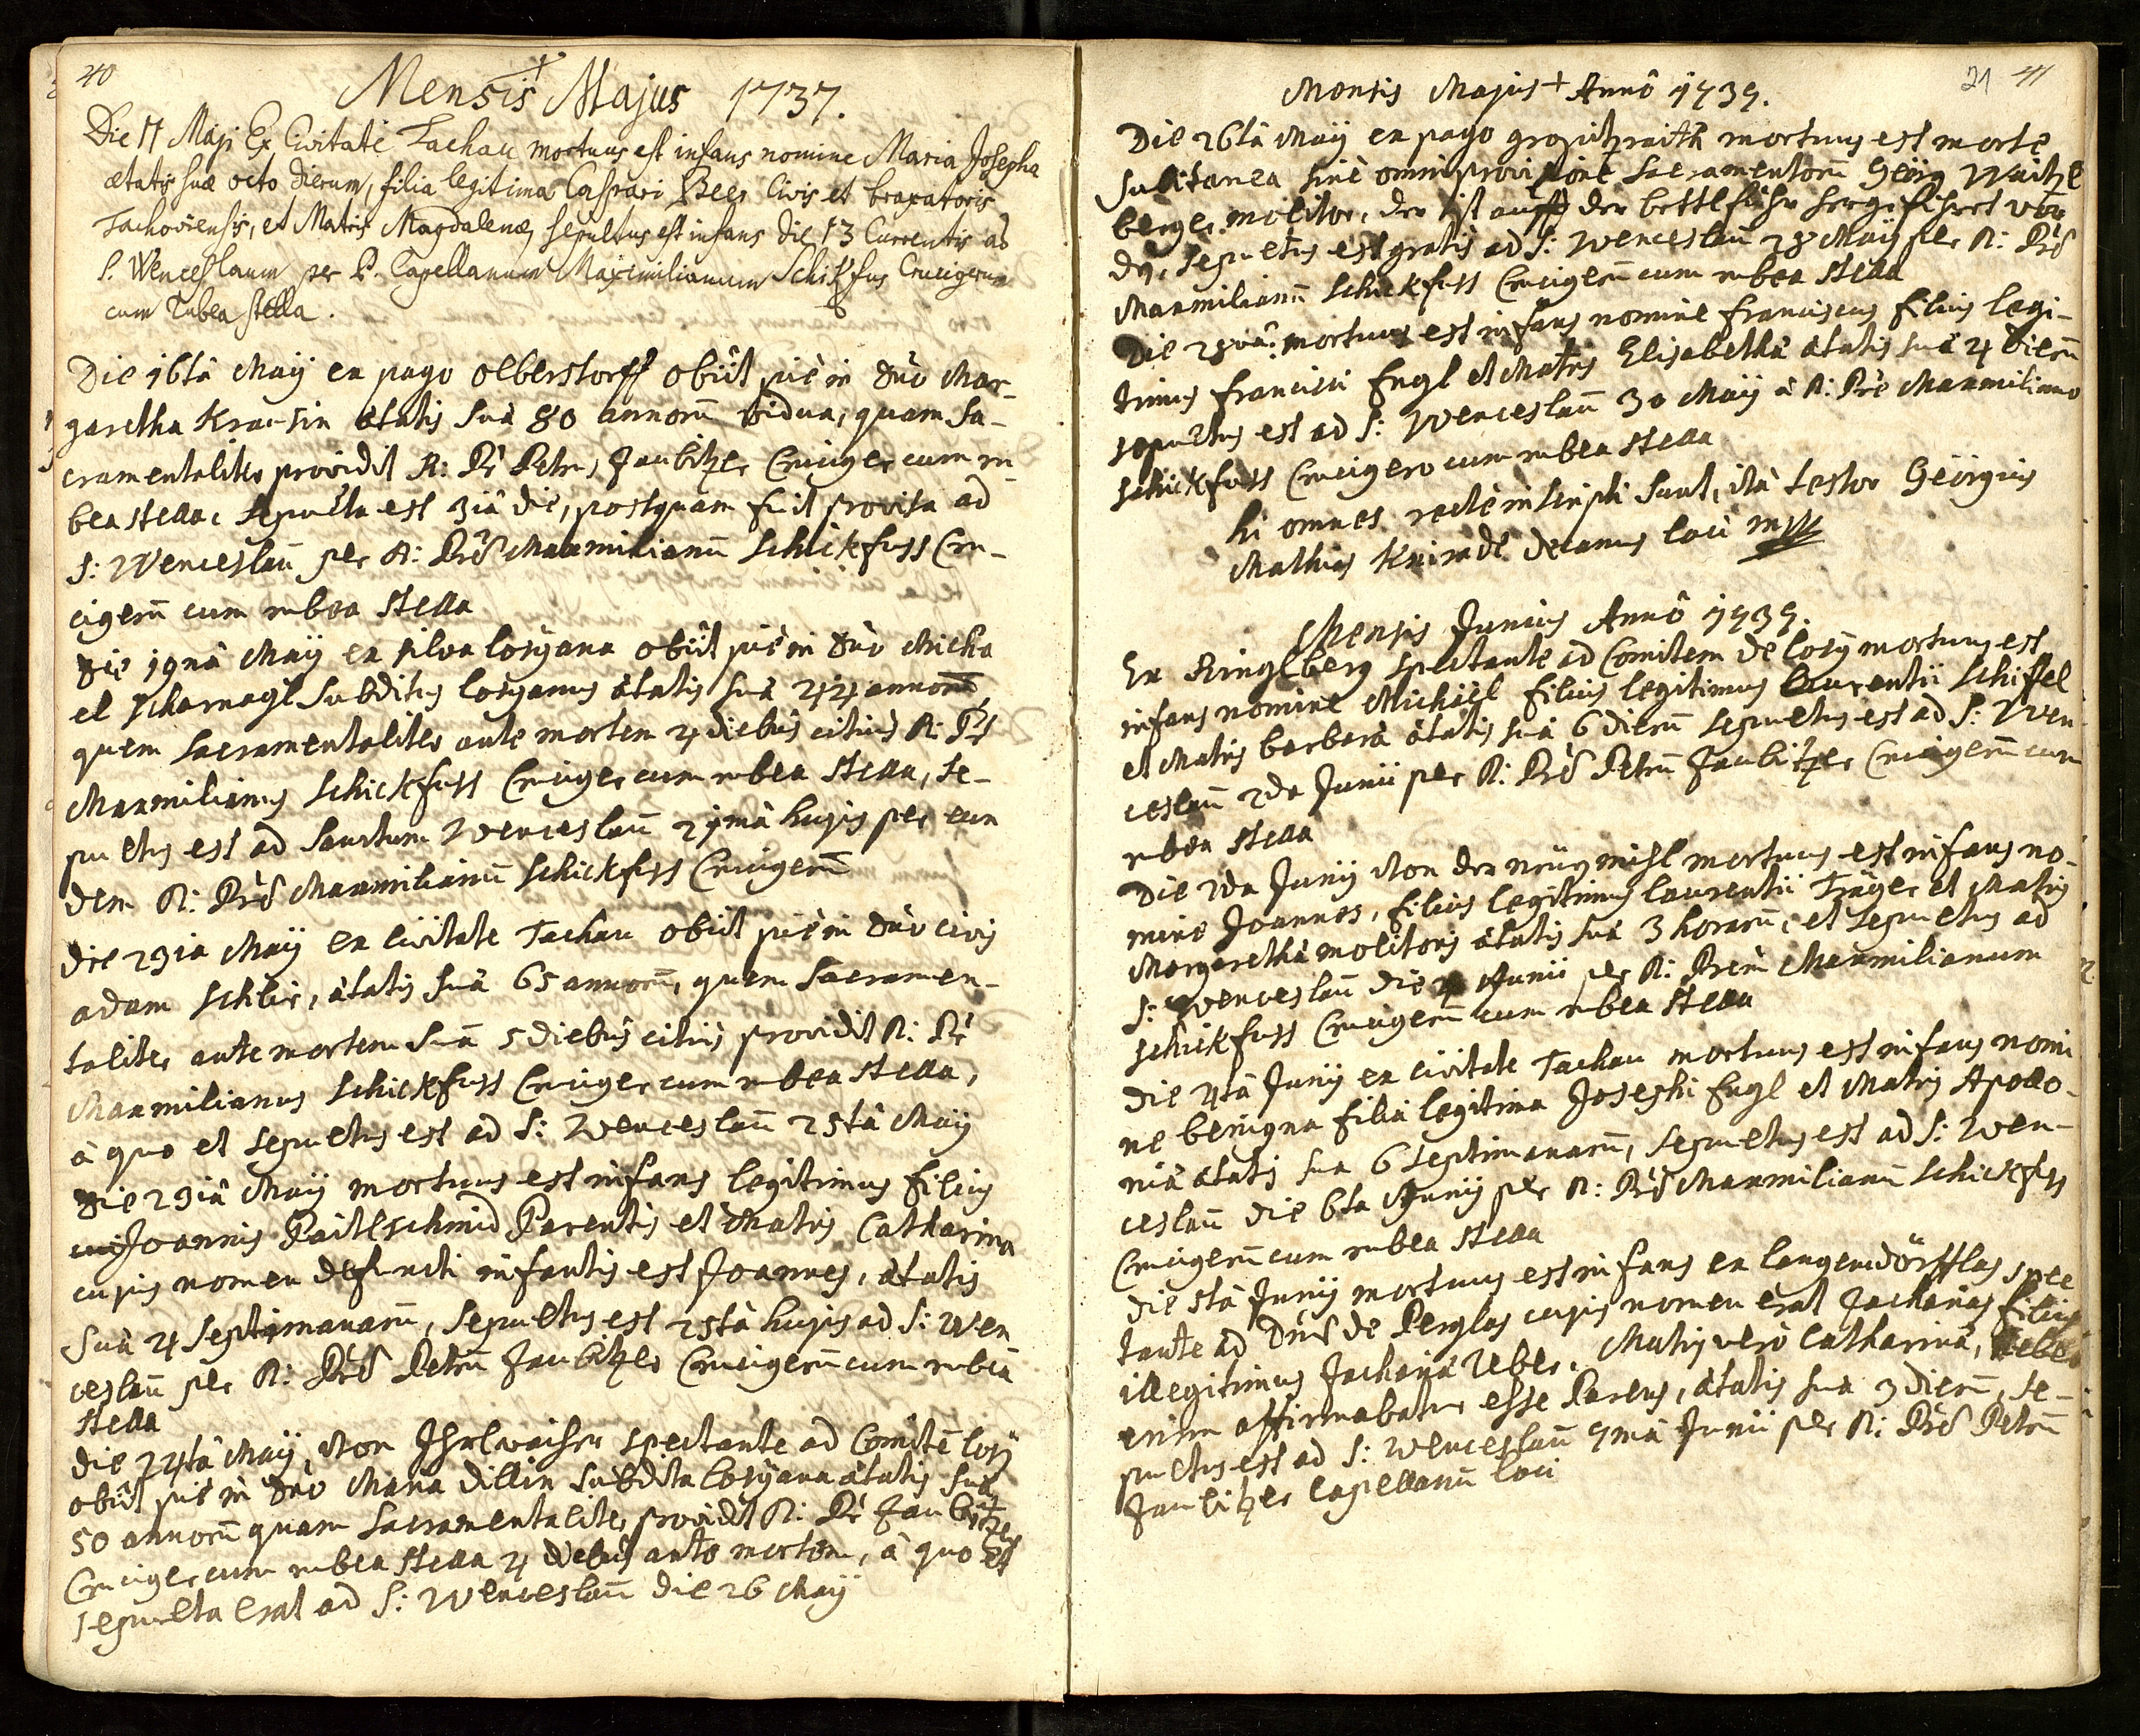 40
Mensis Majus 1737.
Die 11 Maji Ex Civitate Tachau mortuus est infans nomine Maria Josepha
ætatis suæ octo dierum, filia legitima Caspari Beer Civis et braxatoris
Tachoviensis, et Matris Magdalenæ, sepultus est infans die 13 Currentis ad
S. Wenceslaum per P. Capellanum Maximilianum Schikfus Crucigerum
cum rubea stella.
Die 16tâ Maÿ ex pago olberstorff obiit piè in Dño Mar-
garetha Krausin ætatis suâ 80 annorũ vidua, quam sa-
cramentaliter providit R: Pr Petrus Jaubitzer Cruciger cum ru-
bea stella, sepulta est 3iâ die, postquam fuit provisa ad
S: Wenceslaũ per R: Prẽ Maxmilianũ Schickfuss Cru-
cigerũ cum rubea stella
Die 19nâ Maÿ ex silva losÿana obiit piè in Dño Micha
el scharnagl subditus losÿanus ætatis suâ 44 annorũ
quem sacramentaliter ante mortem 4 diebus citius R: Pr
Maxmilianus Schickfuss Cruciger cum rubea stella, se-
pultus est ad sanctum Wenceslaũ 21mâ hujus per eun
dem R: Prẽ Maxmilianũ Schickfuss Crucigerũ
Die 23iâ Maÿ ex civitate Tachau obiit piè in Dño civis
adam Schlir, ætatis suâ 65 annorũ, quem sacramen-
taliter ante mortem suã 5 diebus citius providit R: Pr
Maxmilianus Schickfuss Cruciger cum rubea stella,
à quo et sepultus est ad S: Wenceslaũ 25tâ Maÿ
Die 23iâ Maÿ mortuus est infans legitimus filius
Joannis Paitlschmid Parentis et Matris Catharina
cujus nomen defuncti infantis est Joannes, ætatis
suâ 4 septimanarũ, sepultus est 25tâ hujus ad S: Wen
ceslaũ per R: Prẽ Petrũ Jaubitzer Crucigerũ cum rubeâ
stella
Die 24tâ Maÿ, von Ihrlwaiher spectante ad Comitẽ losÿ
obiit piè in Dño Maria dillin subdita losÿana ætatis suâ
50 annorũ quam sacramentaliter providit R: Pr Jaubitzer
Cruciger cum rubea stella 4 diebus ante mortem, à quo et
sepulta erat ad S: Wenceslaũ die 26 Maÿ
21 41
Mensis Majus Annô 1737.
Die 26tâ Maÿ ex pago mortuus est morte
subitanea sine omni provisione sacramentorũ Geörg Waitzl
berger molitor, der ist auff der bettlfuhr hergeführt wor
dẽ, sepultus est gratis ad S: Wenceslaũ 28 Maÿ per R: Prẽ
Maxmilianũ Schickfuss Crucigerũ cum rubea stella
Die 28vâ mortuus est infans nomine Franciscus filius legi-
timus Francisci Engl et Matris Elisabethâ ætatis suâ 4 dierũ
sepultus est ad S: Wenceslaũ 30 Maÿ à R: Pre Maxmiliano
Schickfuss Crucigero cum rubea stella
hi omnes rectè inscripti sunt, ità testor Geörgius
Mathias Knirade decanus loci mp
Mensis Junius Annô 1737.
Ex Ringlberg spectante ad Comitem de losÿ mortuus est
infans nomine Michäel filius legitimus laurentii Schiffel
et Matris barbarâ ætatis suâ 6 dierũ sepultus est ad S: Wen-
ceslaũ 2da Junii per R: Prẽ Petrũ Jaubitzer Crucigerũ cum
rubea stella
Die 2da Junÿ von der neuÿmihl mortuus est infans no-
mine Joannes, filius legitimus laurentii Träger et Matris
Margarethâ molitoris ætatis suâ 3 horarũ, et sepultus ad
S: Wenceslaũ die 4 Junii per R: Prẽm Maxmilianum
Schickfuss Crucigerũ cum rubea stella
Die 4tâ Junÿ ex civitate Tachau mortuus est infans nomi
ne benigna filia legitima Josephi Engl et Matris Apollo-
niâ ætatis sua 6 septimanarũ, sepultus est ad S: Wen-
ceslaũ die 6ta Junÿ per R: Prẽ Maxmilianũ Schickfuss
Crucigerũ cum rubea stella
Die 5tâ Junÿ mortuus est infans ex langendörfflas spec
tante ad Dñũ de Perglas cujus nomen erat Zacharias filius
illegitimus Zachariâ Ueber, Matris verò Catharinâ, Ueber
enim affirmabatur esse Parens, ætatis sua 3 dierũ, se-
pultus est ad S: Wenceslaũ 7mâ Junii per R: Prẽ Petrũ
Jaubitzer Capellanũ loci